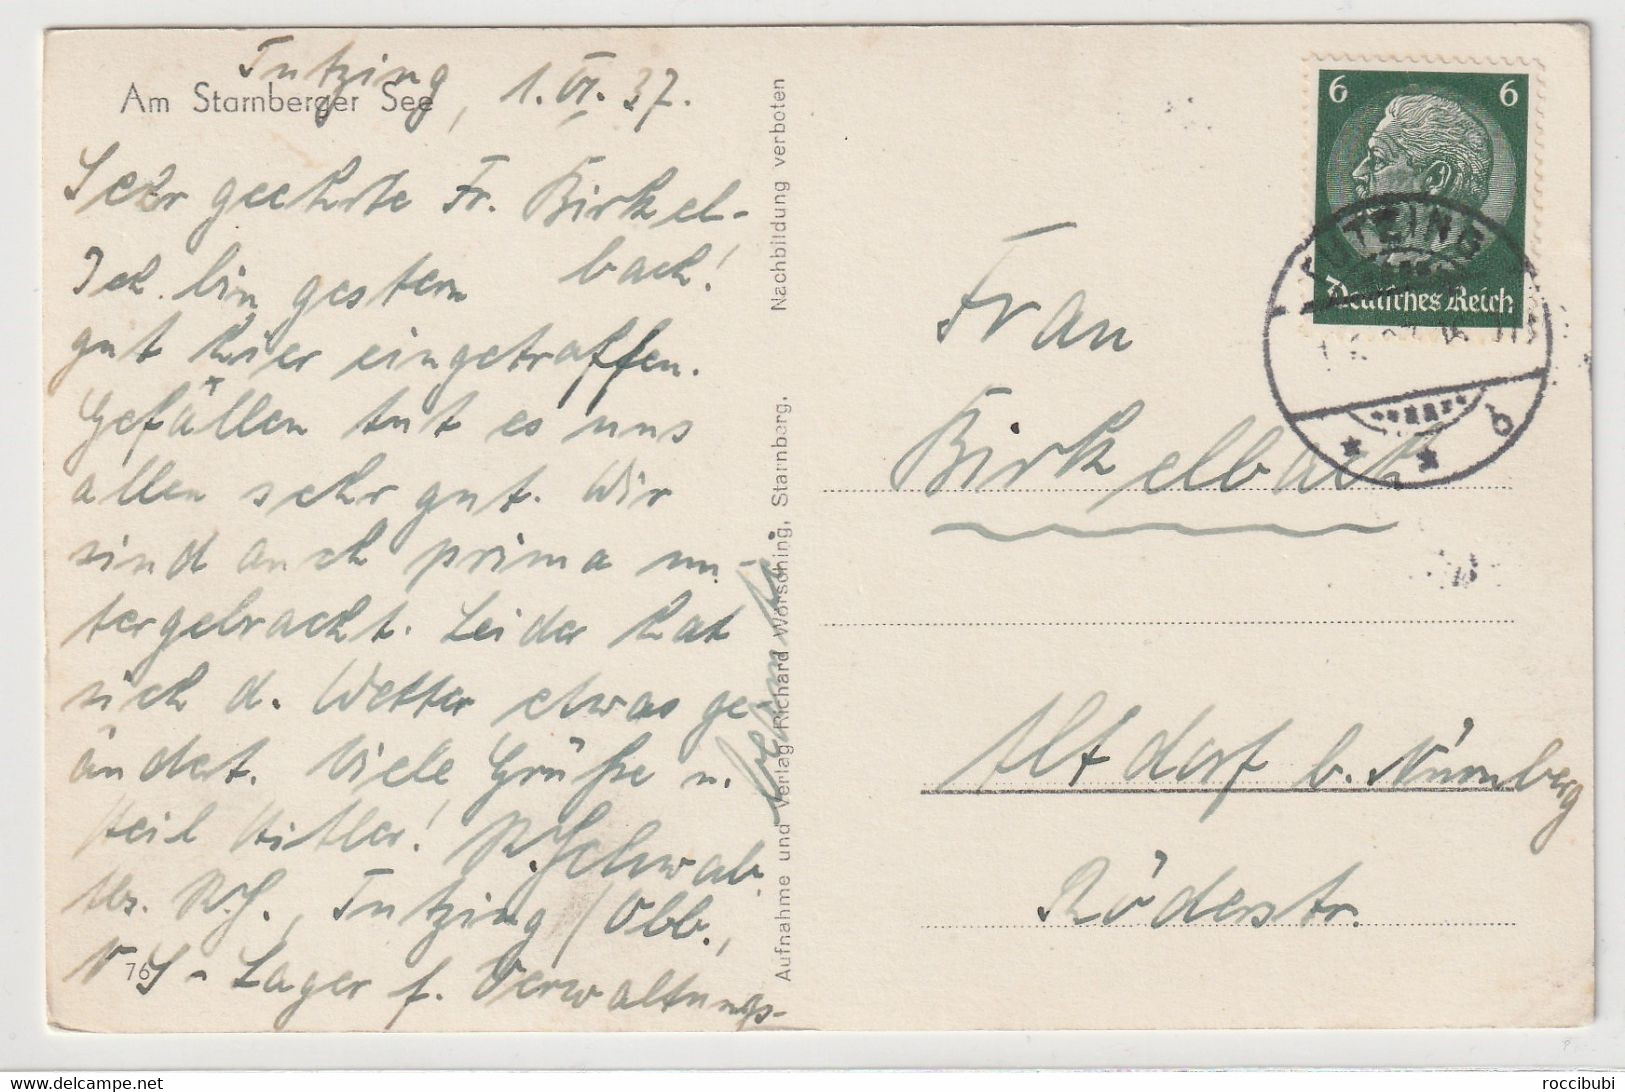 Tutzing, 1. VI. 37.
Am Starnberger See
Sehr geehrte Fr. Birkel-
bach!
Ich bin gestern
gut hier eingetroffen.
Gefallen tut es uns
allen sehr gut. Wir
sind auch prima un-
tergebracht. Leider hat
sich d. Wetter etwas ge-
ändert. Viele Grüße u.
Heil Hitler! R. Schwab.
Abs. R. S., Tutzing / Obb.,
NS-Lager f. Verwaltungs-
beamte
76
Aufnahme und Verlag Richard Wörsching, Starnberg. Nachbildung verboten
6 6
Deutsches Reich
TUTZING
b
Frau
Birkelbach
Altdorf b. Nürnberg
Röderstr.
roccibubi